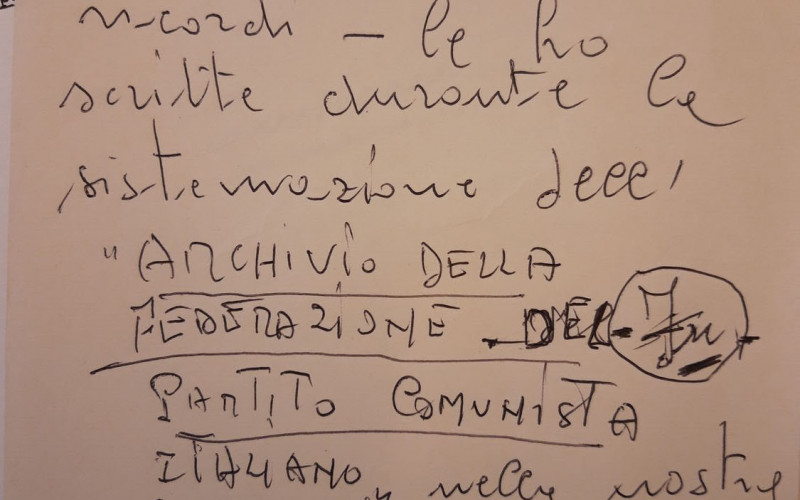 ricordi - le ho
scritte durante la
sistemazione dell'
"ARCHIVIO DELLA
FEDERAZIONE DEL
PARTITO COMUNISTA
ITALIANO" nelle nostre